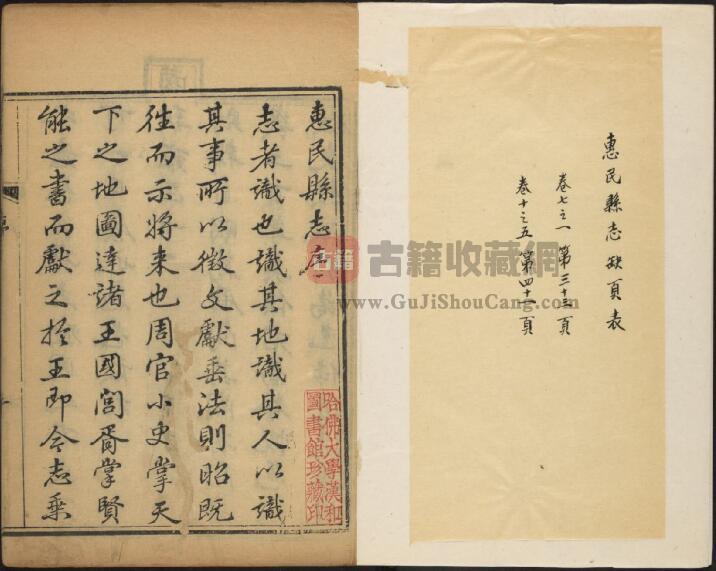 惠民縣志缺頁表
卷七之一 第三十三頁
卷十之五 第四十二頁
惠民縣志序
志者識也識其地識其人以識
其事所以徵文獻垂法則昭既
往而示將来也周官小史掌天
下之地圖達諸王國閭胥掌賢
能之書而獻之於王即今志乗
哈佛大學漢和
圖書館珍藏印
古籍
古籍收藏网
www.GuJiShouCang.com